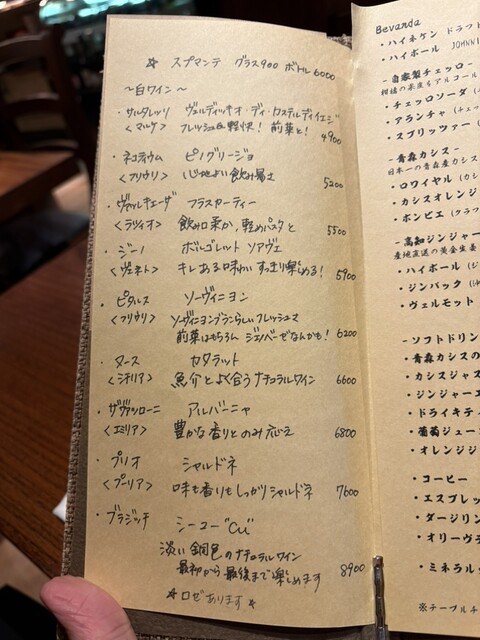 ☆ スプマンテ グラス900 ボトル6000
〜白ワイン〜
・サルタレッリ ヴェルディッキオ・ディ・カステルディイエジ
<マルケ> フレッシュ&軽快! 前菜と! 4900
・ネコティウム ピノグリージョ
<フリウリ> 心地よい飲み易さ 5200
・ヴァルキェーザ フラスカーティー
<ラツィオ> 飲み口柔か、軽めパスタと 5500
・ジーノ ボルゴレット ソアヴェ
<ヴェネト> キレある味わい すっきり楽しめる! 5900
・ピタルス ソーヴィニヨン
<フリウリ> ソーヴィニヨンブランらしいフレッシュさ
前菜はもちろん ジェノベーゼなんかも! 6200
・ヌース カタラット
<シチリア> 魚介とよく合うナチュラルワイン 6600
・ザヴァッローニ アルバーニャ
<エミリア> 豊かな香りとのみ応え 6800
・プリオ シャルドネ
<プーリア> 味も香りもしっかりシャルドネ 7600
・ブラジッチ シーユー"Cu"
淡い銅色のナチュラルワイン
最初から最後まで楽しめます 8900
☆ロゼあります☆
Bevanda
・ハイネケン ドラフト
・ハイボール
-自家製チェッロ-
柑橘の果皮をアルコール
・チェッロソーダ
・アランチャ
・スプリッツァー
-青森カシス-
日本一の青森産カシス
・ロワイヤル
・カシスオレンジ
・ボンビエ
-高知ジンジャー
産地直送の黄金生姜
・ハイボール
・ジンバック
・ヴェルモット
-ソフトドリン
・青森カシスの
・カシスジャス
・ジンジャーエ
・ドライキティ
・葡萄ジュー
・オレンジジ
・コーヒー
・エスプレッ
・ダージリン
・オリーヴラ
・ミネラル
※テーブルチ